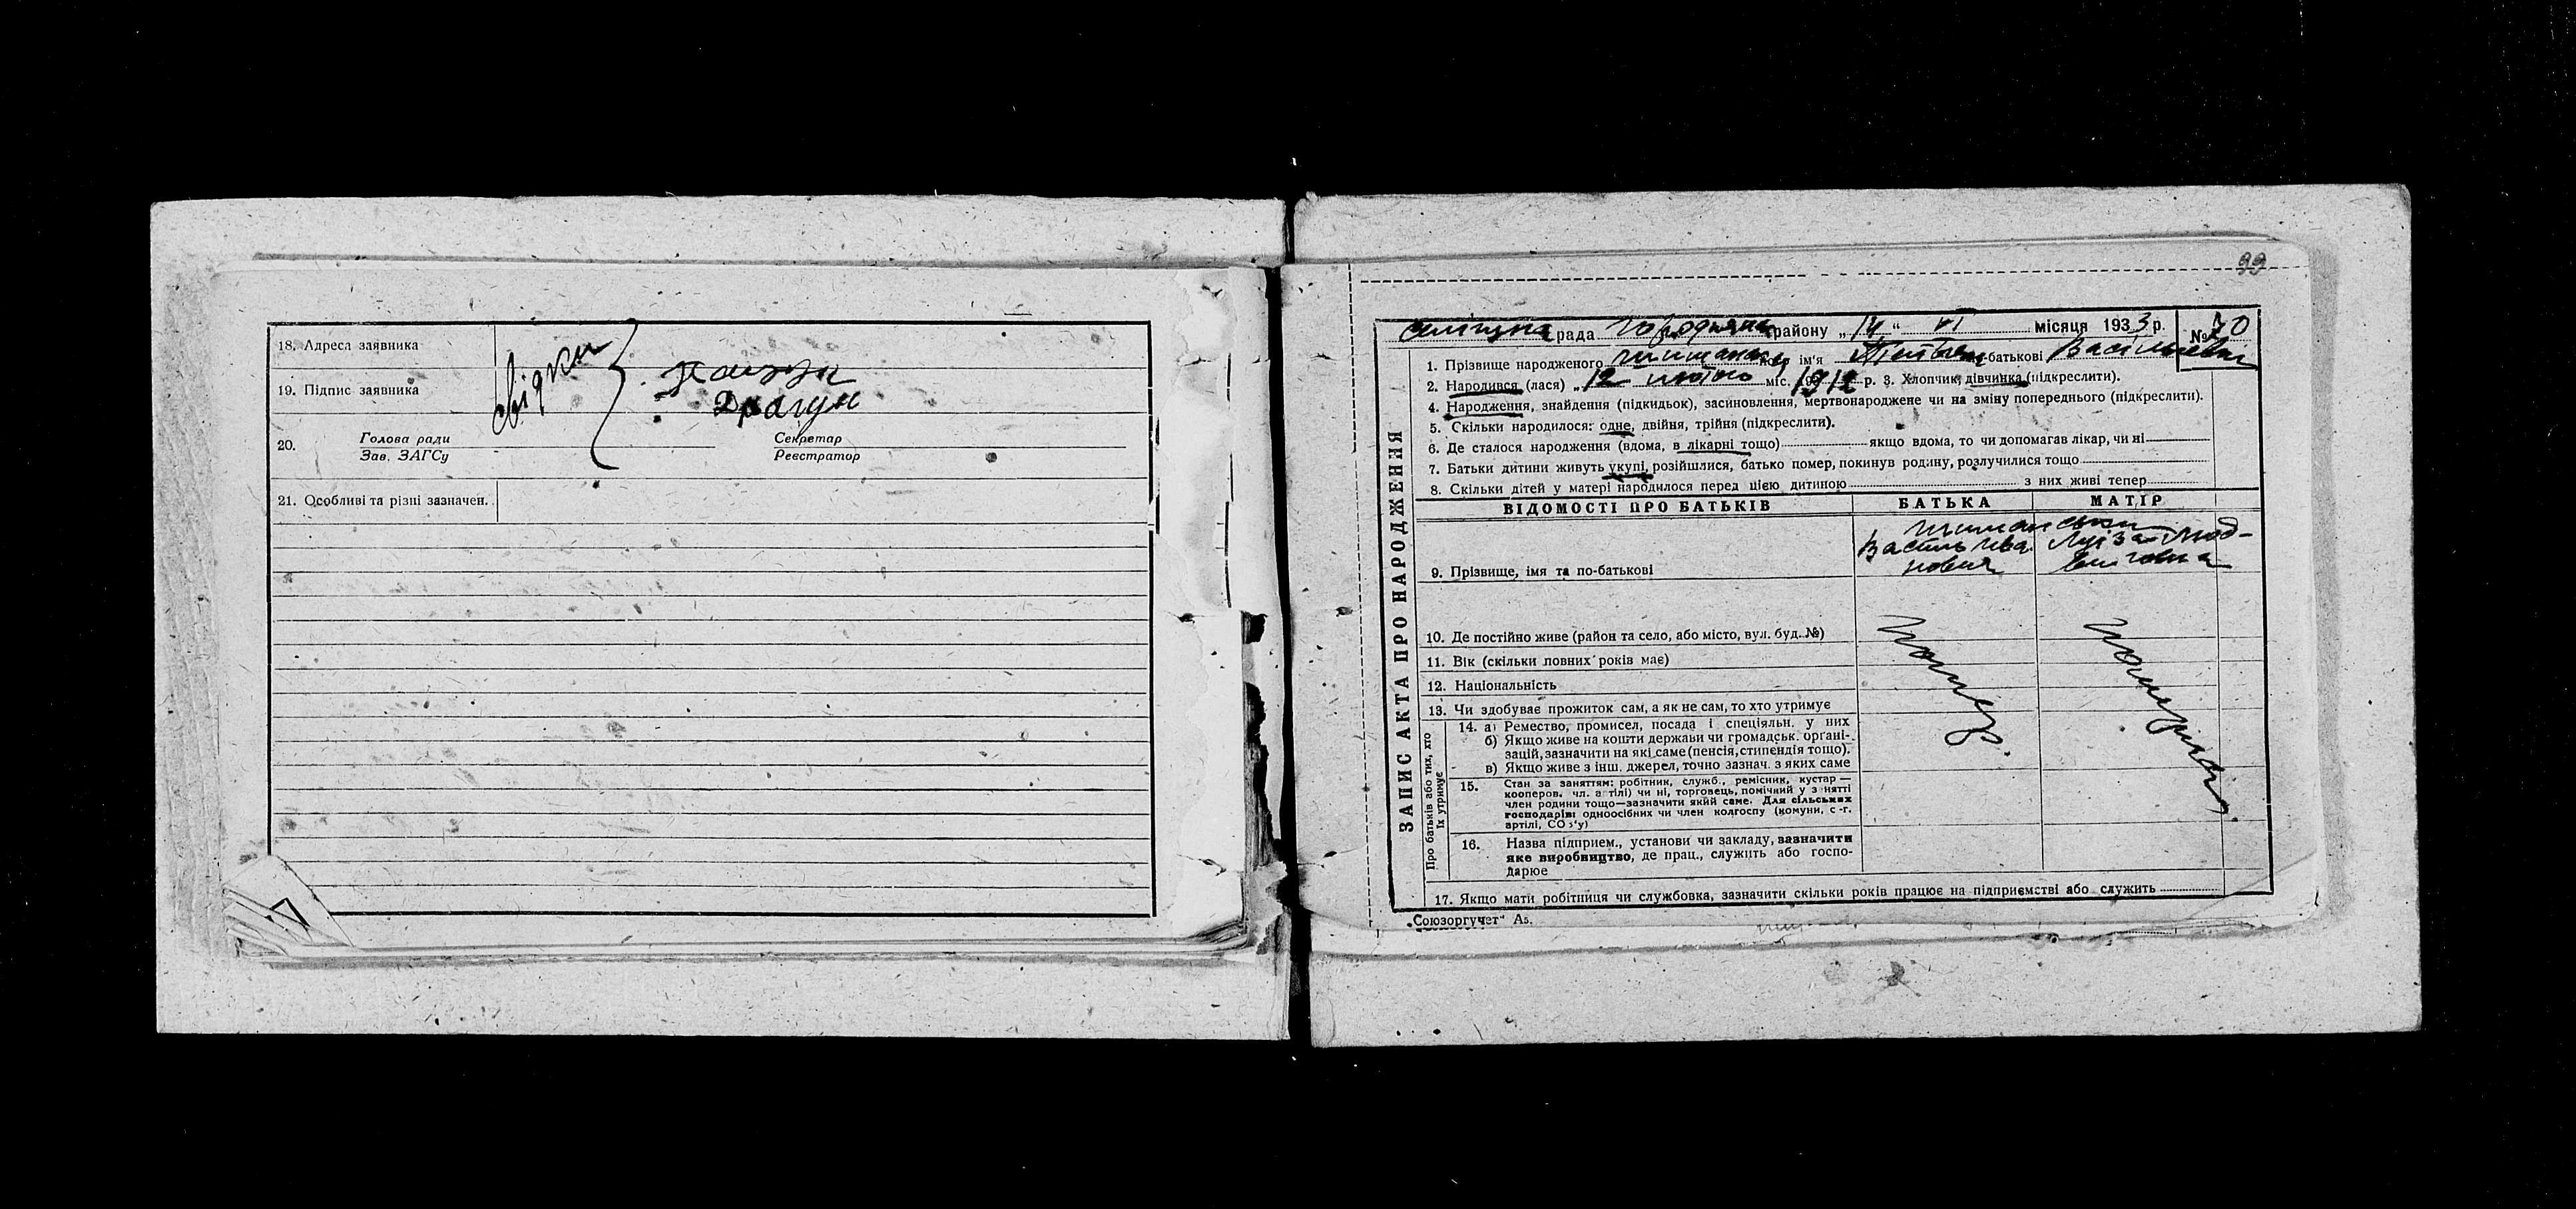 18. Адреса заявника
19. Підпис заявника
свідки
Драгун
20. Голова ради Секретар
Зав. ЗАГСу Реєстратор
21. Особливі та різні зазначен.
99
рада району „14“ VI місяця 1933 р. № 30
ЗАПИС АКТА ПРО НАРОДЖЕННЯ
1. Прізвище народженого ім'я по-батькові
2. Народився (лася) „12 міс. 1912 р. 3. Хлопчик, дівчинка (підкреслити).
4. Народження, знайдення (підкидьок), засиновлення, мертвонароджене чи на зміну попереднього (підкреслити).
5. Скільки народилося: одне, двійня, трійня (підкреслити).
6. Де сталося народження (вдома, в лікарні тощо) якщо вдома, то чи допомагав лікар, чи ні
7. Батьки дитини живуть укупі, розійшлися, батько помер, покинув родину, розлучилися тощо
8. Скільки дітей у матері народилося перед цією дитиною з них живі тепер
ВІДОМОСТІ ПРО БАТЬКІВ БАТЬКА МАТІР
Василь Ива- Луіза Люд-
9. Прізвище, імя та по-батькові
10. Де постійно живе (район та село, або місто, вул. буд. №)
11. Вік (скільки повних років має)
12. Національність
13. Чи здобуває прожиток сам, а як не сам, то хто утримує
Про батьків або тих, хто їх утримує
14. а) Ремество, промисел, посада і спеціяльн. у них
б) Якщо живе на кошти держави чи громадськ. органі-
зацій, зазначити на які саме (пенсія, стипендія тощо).
в) Якщо живе з інш. джерел, точно зазнач. з яких саме
15. Стан за заняттям: робітник, служб., ремісник, кустар —
кооперов. чл. артілі) чи ні, торговець, помічний у занятті
член родини тощо—зазначити який саме. Для сільських
господарів: одноосібних чи член колгоспу (комуни, с.-г.
артілі, СОЗ'у)
16. Назва підприєм., установи чи закладу, зазначити
яке виробництво, де прац., служить або госпо-
дарює
17. Якщо мати робітниця чи службовка, зазначити скільки років працює на підприємстві або служить
„Союзоргучет“ Аз.